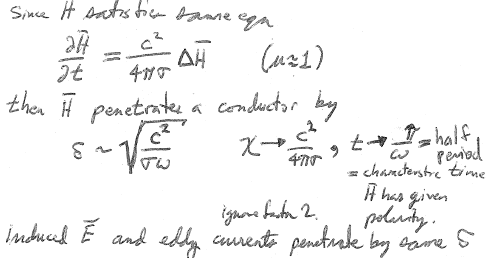 Since H satisfies same eqn
∂H̄/∂t = c²/4πσ ΔH̄ (μ≈1)
then H̄ penetrates a conductor by
δ ~ √(c²/σω) χ → c²/4πσ, t → π/ω = half period
= characteristic time
H̄ has given
polarity.
ignore factor 2.
induced Ē and eddy currents penetrate by same δ